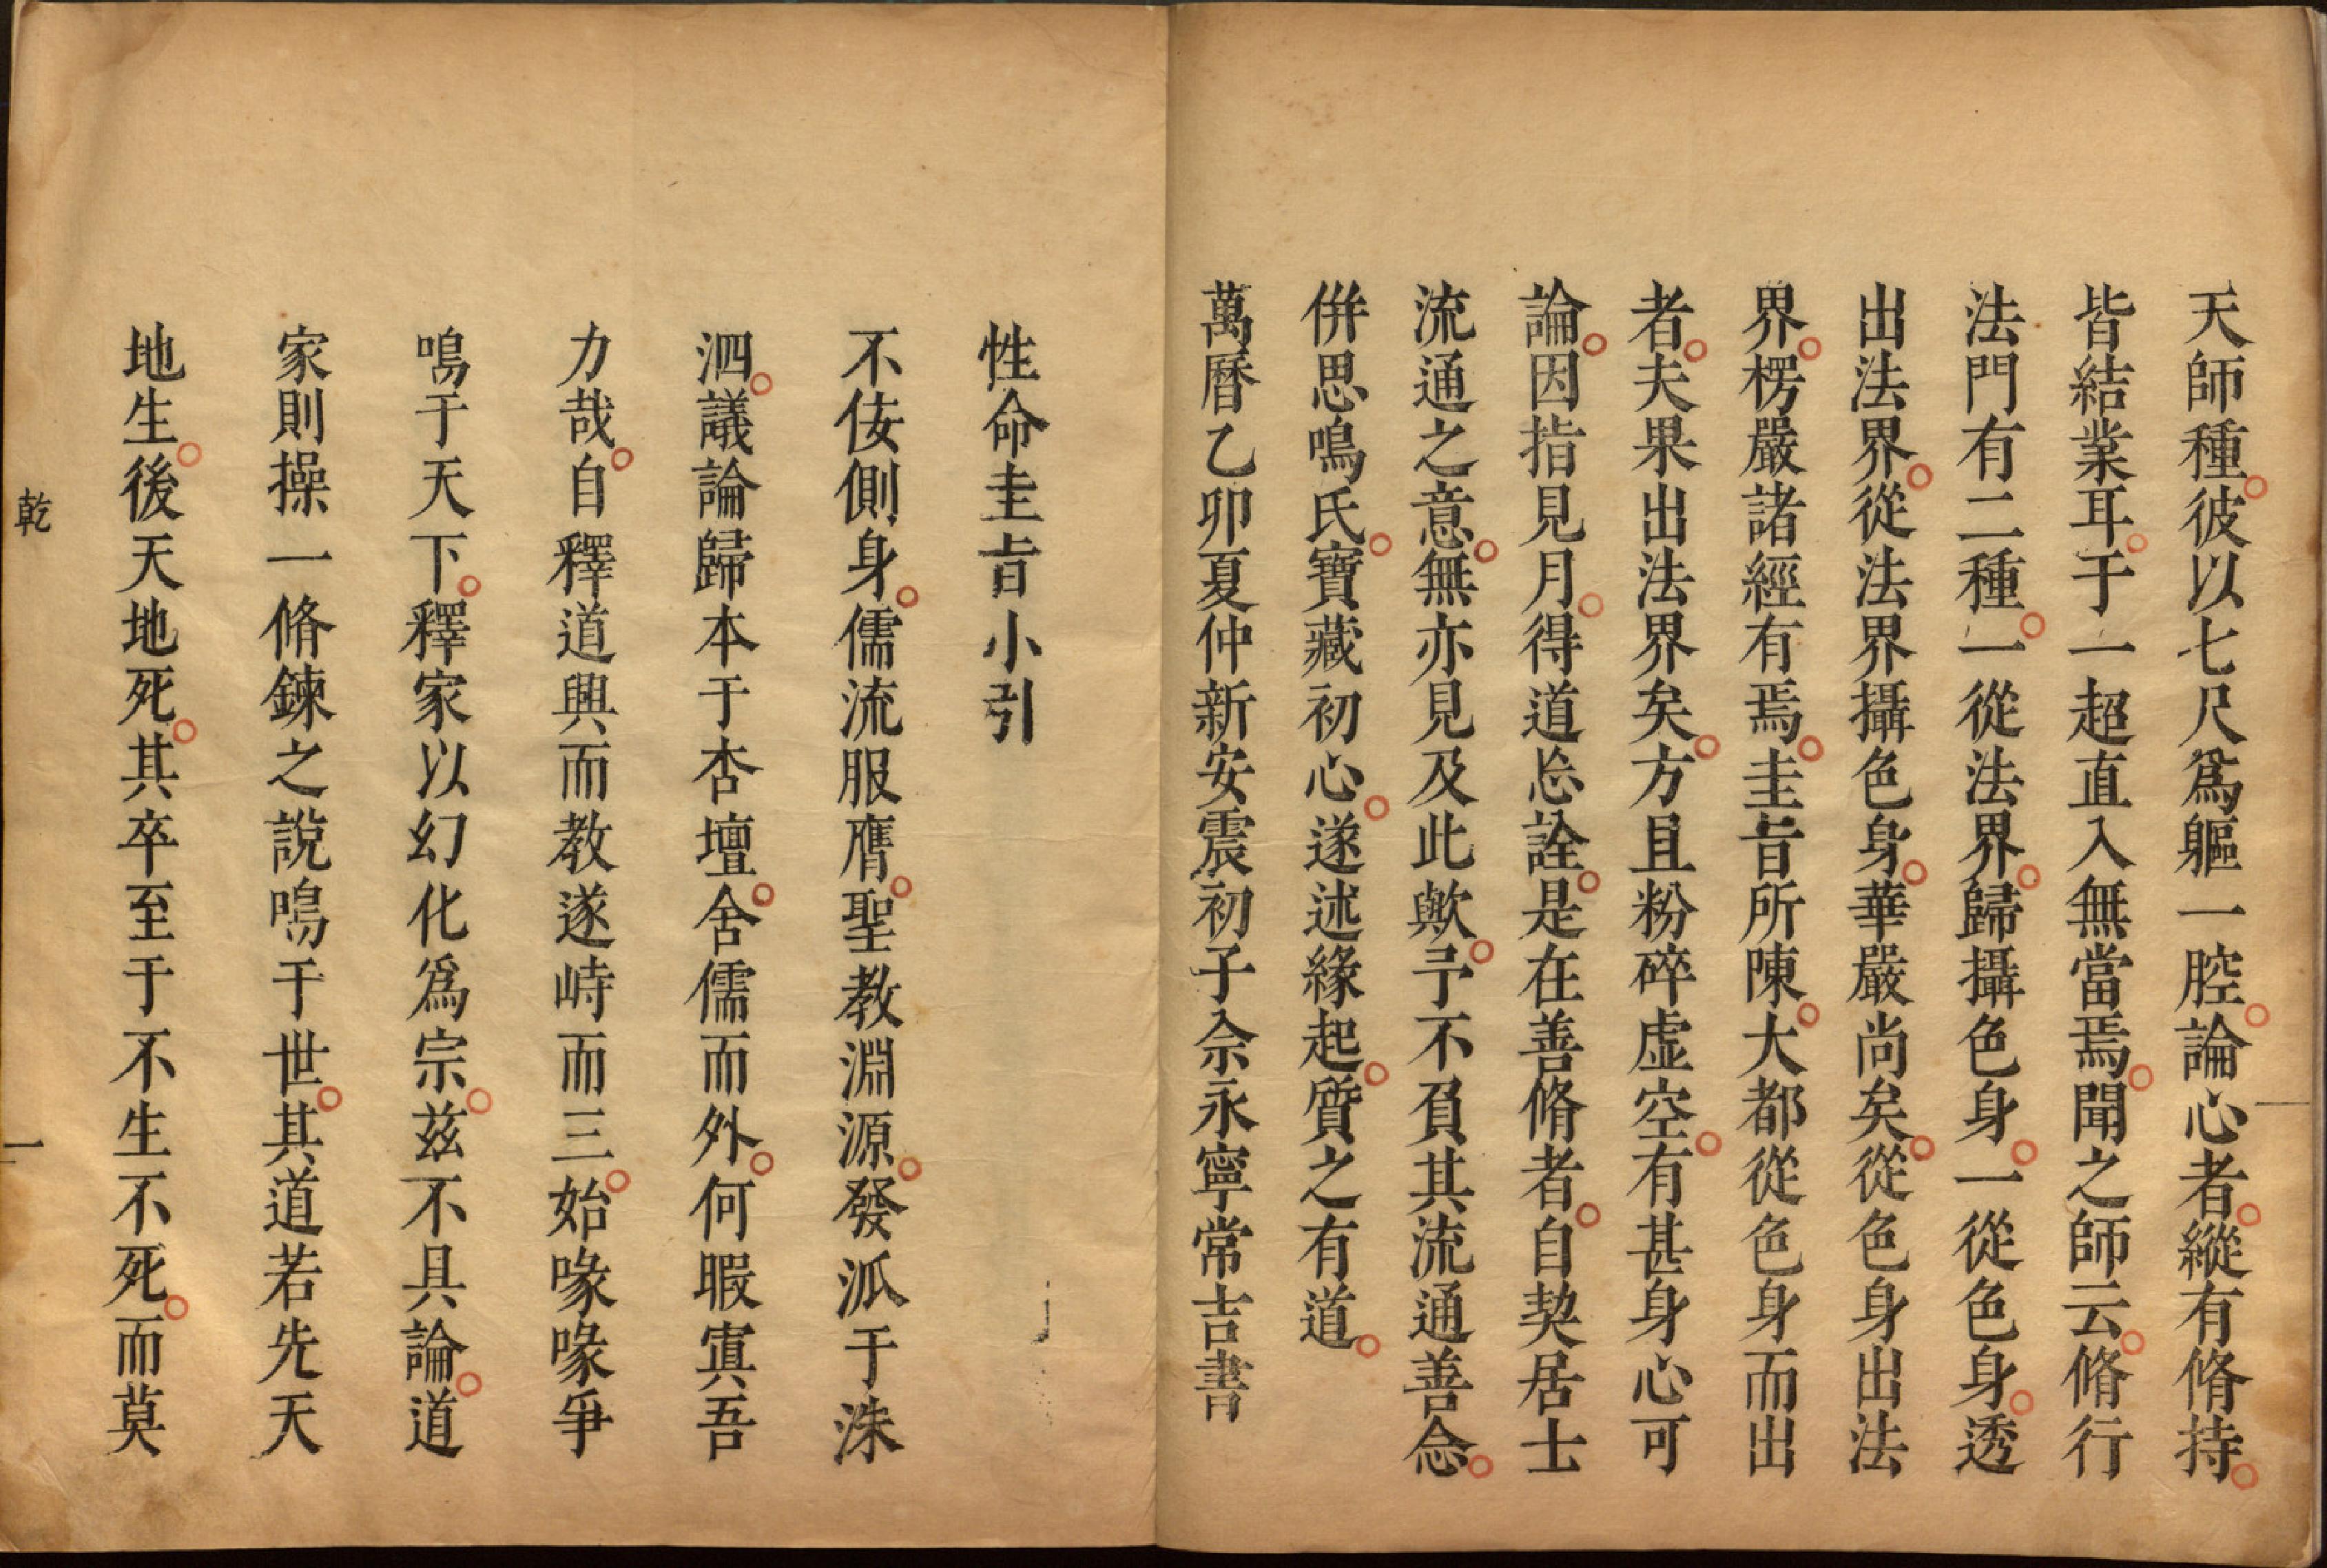 天師種。彼以七尺爲軀一腔。論心者。縱有脩持。
皆結業耳。于一超直入無當焉。聞之師云。脩行
法門有二種。一從法界。歸攝色身。一從色身。透
出法界。從法界攝色身。華嚴尚矣。從色身出法
界。楞嚴諸經有焉。圭旨所陳。大都從色身而出
者。夫果出法界矣。方且粉碎虛空。有甚身心可
論。因指見月。得道忘詮。是在善脩者。自契居士
流通之意。無亦見及此歟。予不負其流通善念。
併思鳴氏。寶藏初心。遂述緣起。質之有道。
萬曆乙卯夏仲新安震初子佘永寧常吉書
性命圭旨小引
不佞側身。儒流服膺。聖教淵源。發派于洙
泗。議論歸本于杏壇。舍儒而外。何暇寘吾
力哉。自釋道興而教遂峙而三。始喙喙爭
鳴于天下。釋家以幻化爲宗。茲不具論。道
家則操一脩鍊之說鳴于世。其道若先天
地生。後天地死。其卒至于不生不死。而莫
乾
一